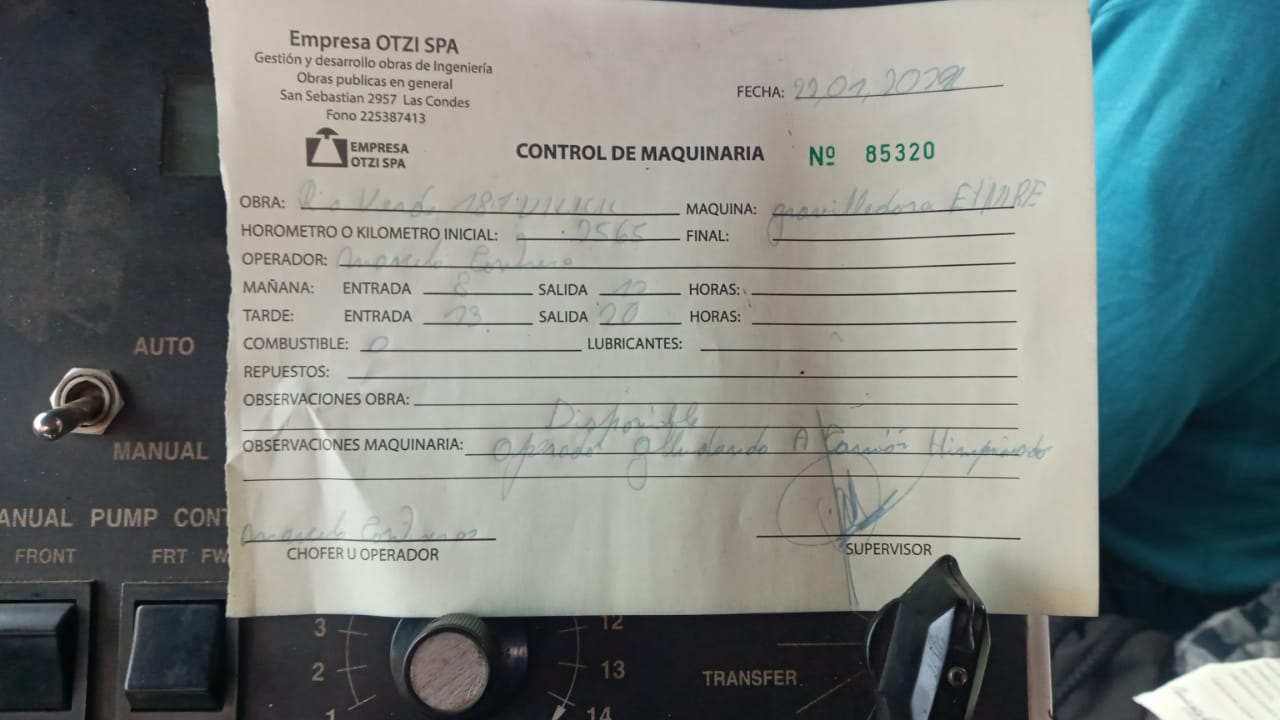 Empresa OTZI SPA
Gestión y desarrollo obras de Ingeniería
Obras publicas en general
San Sebastian 2957 Las Condes
Fono 225387413
EMPRESA
OTZI SPA
FECHA: 22,01,
CONTROL DE MAQUINARIA Nº 85320
OBRA: Rio Verde MAQUINA: gravilladora
HOROMETRO O KILOMETRO INICIAL: 2565 FINAL:
OPERADOR: Marcelo Contreras
MAÑANA: ENTRADA 8 SALIDA 12 HORAS:
TARDE: ENTRADA 13 SALIDA 20 HORAS:
COMBUSTIBLE: 0 LUBRICANTES:
REPUESTOS:
OBSERVACIONES OBRA:
Disponible
OBSERVACIONES MAQUINARIA: Operador A Camión
Marcelo Contreras
CHOFER U OPERADOR SUPERVISOR
AUTO
MANUAL
ANUAL PUMP CONT
FRONT FRT FW
3 12
2 13
1 14
TRANSFER